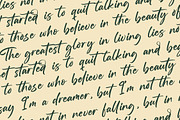 lies not
t started is to quit talking and
to those who believe in the beauty of
The greatest glory in living lies not
et started is to quit talking and beg
to those who believe in the beauty
say I'm a dreamer, but I'm not
not in never falling, but in